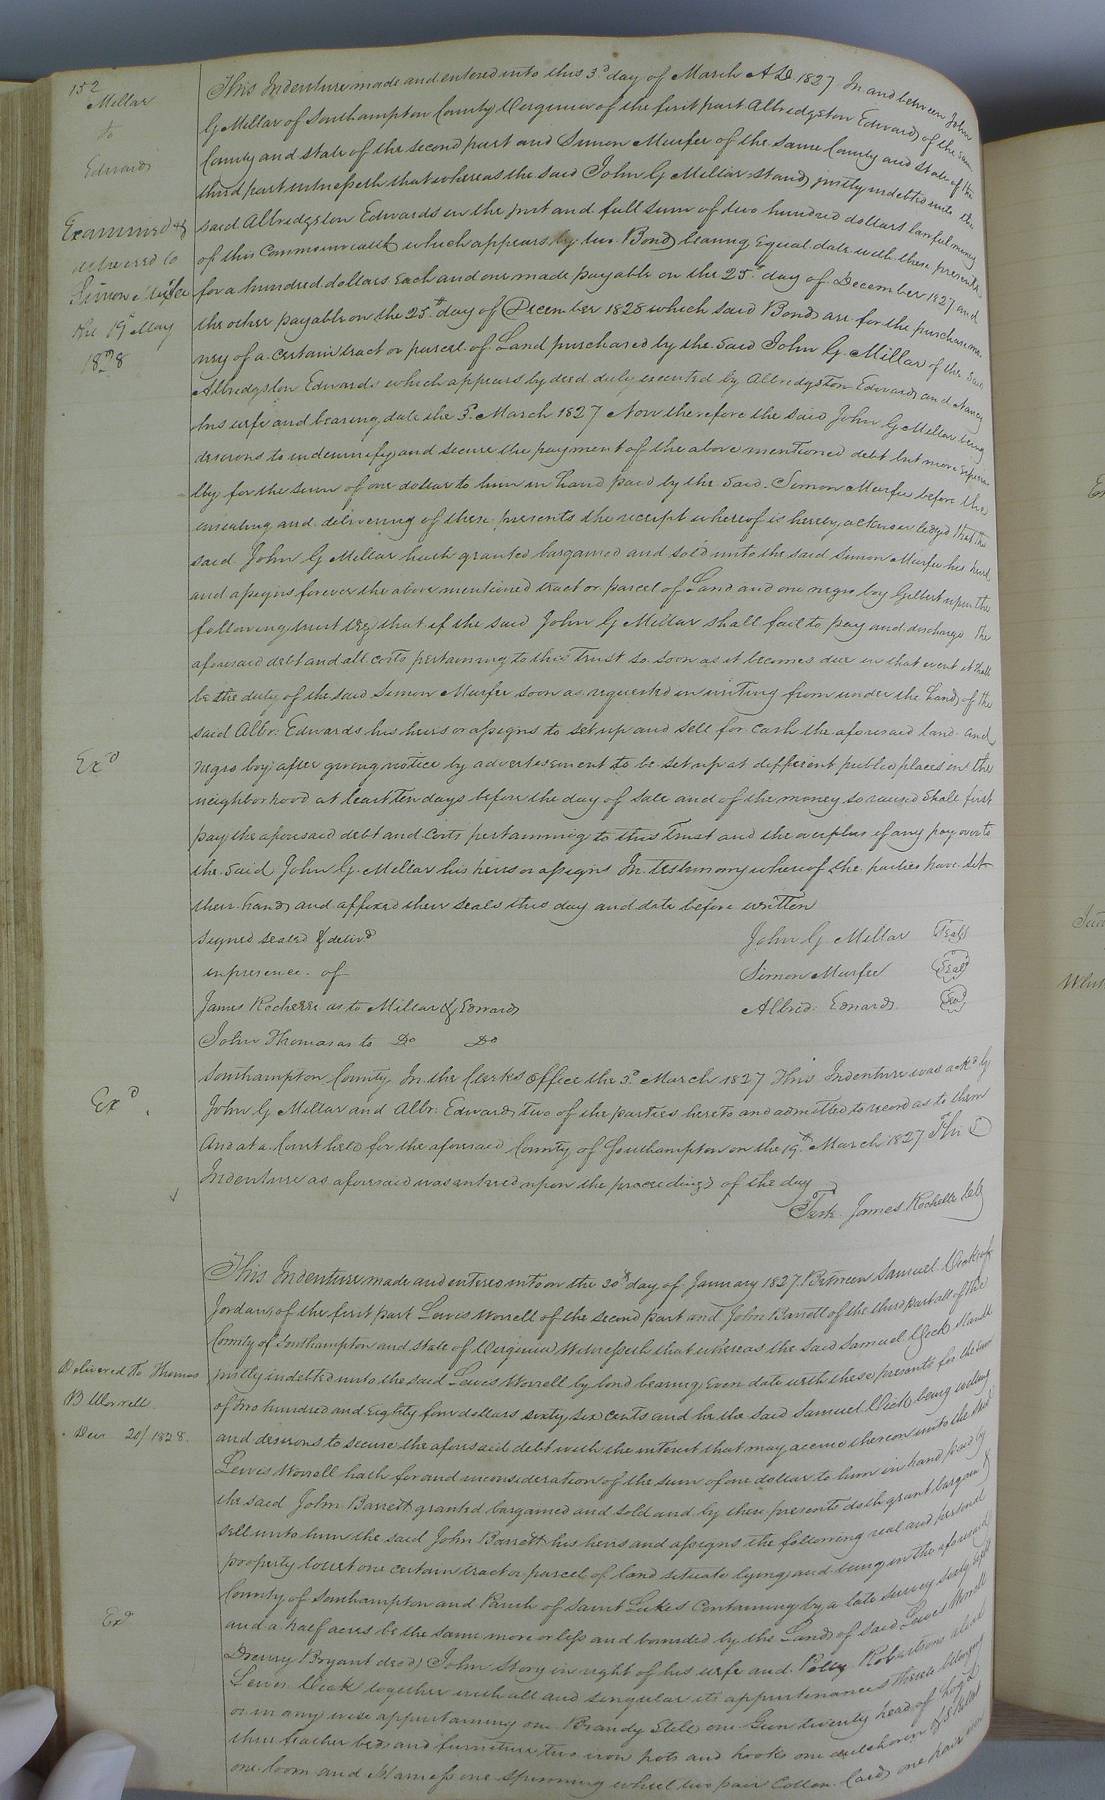 152
Millar
to
Edwards
Examined &
delivered to
Simon Murfee
the 19th May
1828
This Indenture made and entered into this 3d day of March AD. 1827 In and between John
G Millar of Southampton County Virginia of the first part Albridgston Edwards of the same
County and state of the second part and Simon Murfee of the same County and State of the
third part witnesseth that whereas the said John G Millar stands justly indebted unto the
said Albridgston Edwards in the just and full sum of two hundred dollars lawful money
of this Commonwealth which appears by two Bonds bearing Equal date with these presents
for a hundred dollars Each and one made payable on the 25th day of December 1827 and
the other payable on the 25th day of December 1828 which said Bonds are for the purchase mo-
ney of a certain tract or parcel of Land purchased by the said John G. Millar of the said
Albridgston Edwards which appears by deed duly executed by Albridgston Edwards and Nancy
his wife and bearing date the 3d March 1827 Now therefore the said John G Millar being
desirous to indemnify and secure the payment of the above mentioned debt but more especia-
lly for the sum of one dollar to him in hand paid by the said Simon Murfee before the
ensealing and delivering of these presents the receipt whereof is hereby acknowledged that the
said John G Millar hath granted bargained and sold unto the said Simon Murfee his heirs
and assigns forever the above mentioned tract or parcel of Land and one negro boy Gilbert upon the
following trust (Viz) that if the said John G Millar shall fail to pay and discharge the
aforesaid debt and all costs pertaining to this Trust so soon as it becomes due in that event it shall
be the duty of the said Simon Murfee soon as requested in writing from under the hand of the
said Albr: Edwards his heirs or assigns to set up and sell for cash the aforesaid land and
Exd
negro boy after giving notice by advertisement to be set up at different public places in the
neighborhood at least ten days before the day of sale and of the money so raised shall first
pay the aforesaid debt and costs pertainning to this Trust and the overplus if any pay over to
the said John G. Millar his heirs or assigns In testimony whereof the parties have set
their hands and affixed their seals this day and date before written
Signed sealed & delivd John G. Millar Seal
in presence of Simon Murfee Seal
James Rochelle as to Millar & Edwards Albrid: Edwards Seal
John Thomas as to Do Do
Southampton County In the Clerks office the 3d March 1827 This Indenture was ackd by
Exd
John G Millar and Albr: Edwards two of the parties hereto and admitted to record as to them
And at a Court held for the aforesaid County of Southampton on the 19th March 1827 This
Indenture as aforesaid was entered upon the proceedings of the day
Teste James Rochelle Clk
This Indenture made and entered into on the 30th day of January 1827 Between Samuel Cook of
Jordan of the first part Lewis Worrell of the second part and John Barrett of the third part all of the
County of Southampton and State of Virginia Witnesseth that whereas the said Samuel Cook stands
Delivered to Thomas
B Worrell
Decr 20/1828.
justly indebted unto the said Lewis Worrell by bond bearing Even date with these presents for the sum
of two hundred and Eighty four dollars sixty six cents and he the said Samuel Cook being willing
and desirous to secure the aforesaid debt with the interest that may accrue thereon unto the said
Lewis Worrell hath for and in consideration of the sum of one dollar to him in hand paid by
the said John Barrett granted bargained and sold and by these presents doth grant bargain &
sell unto him the said John Barrett his heirs and assigns the following real and personal
property to wit one certain tract or parcel of land situate lying and being in the aforesaid
County of Southampton and Parish of Saint Lukes Containing by a late survey sixty eight
Exd
and a half acres be the same more or less and bounded by the Lands of said Lewis Worrell
Drewry Bryant decd, John Story in right of his wife and Polly Robertsons also
Lewis Cook together with all and singular its appurtenances thereto belonging
or in any wise appertaining one Brandy Still one Gun twenty head of hogs
three feather beds and furniture two iron pots and hooks one one
one loom and Harness one spinning wheel two pair Cotton Cards one pair